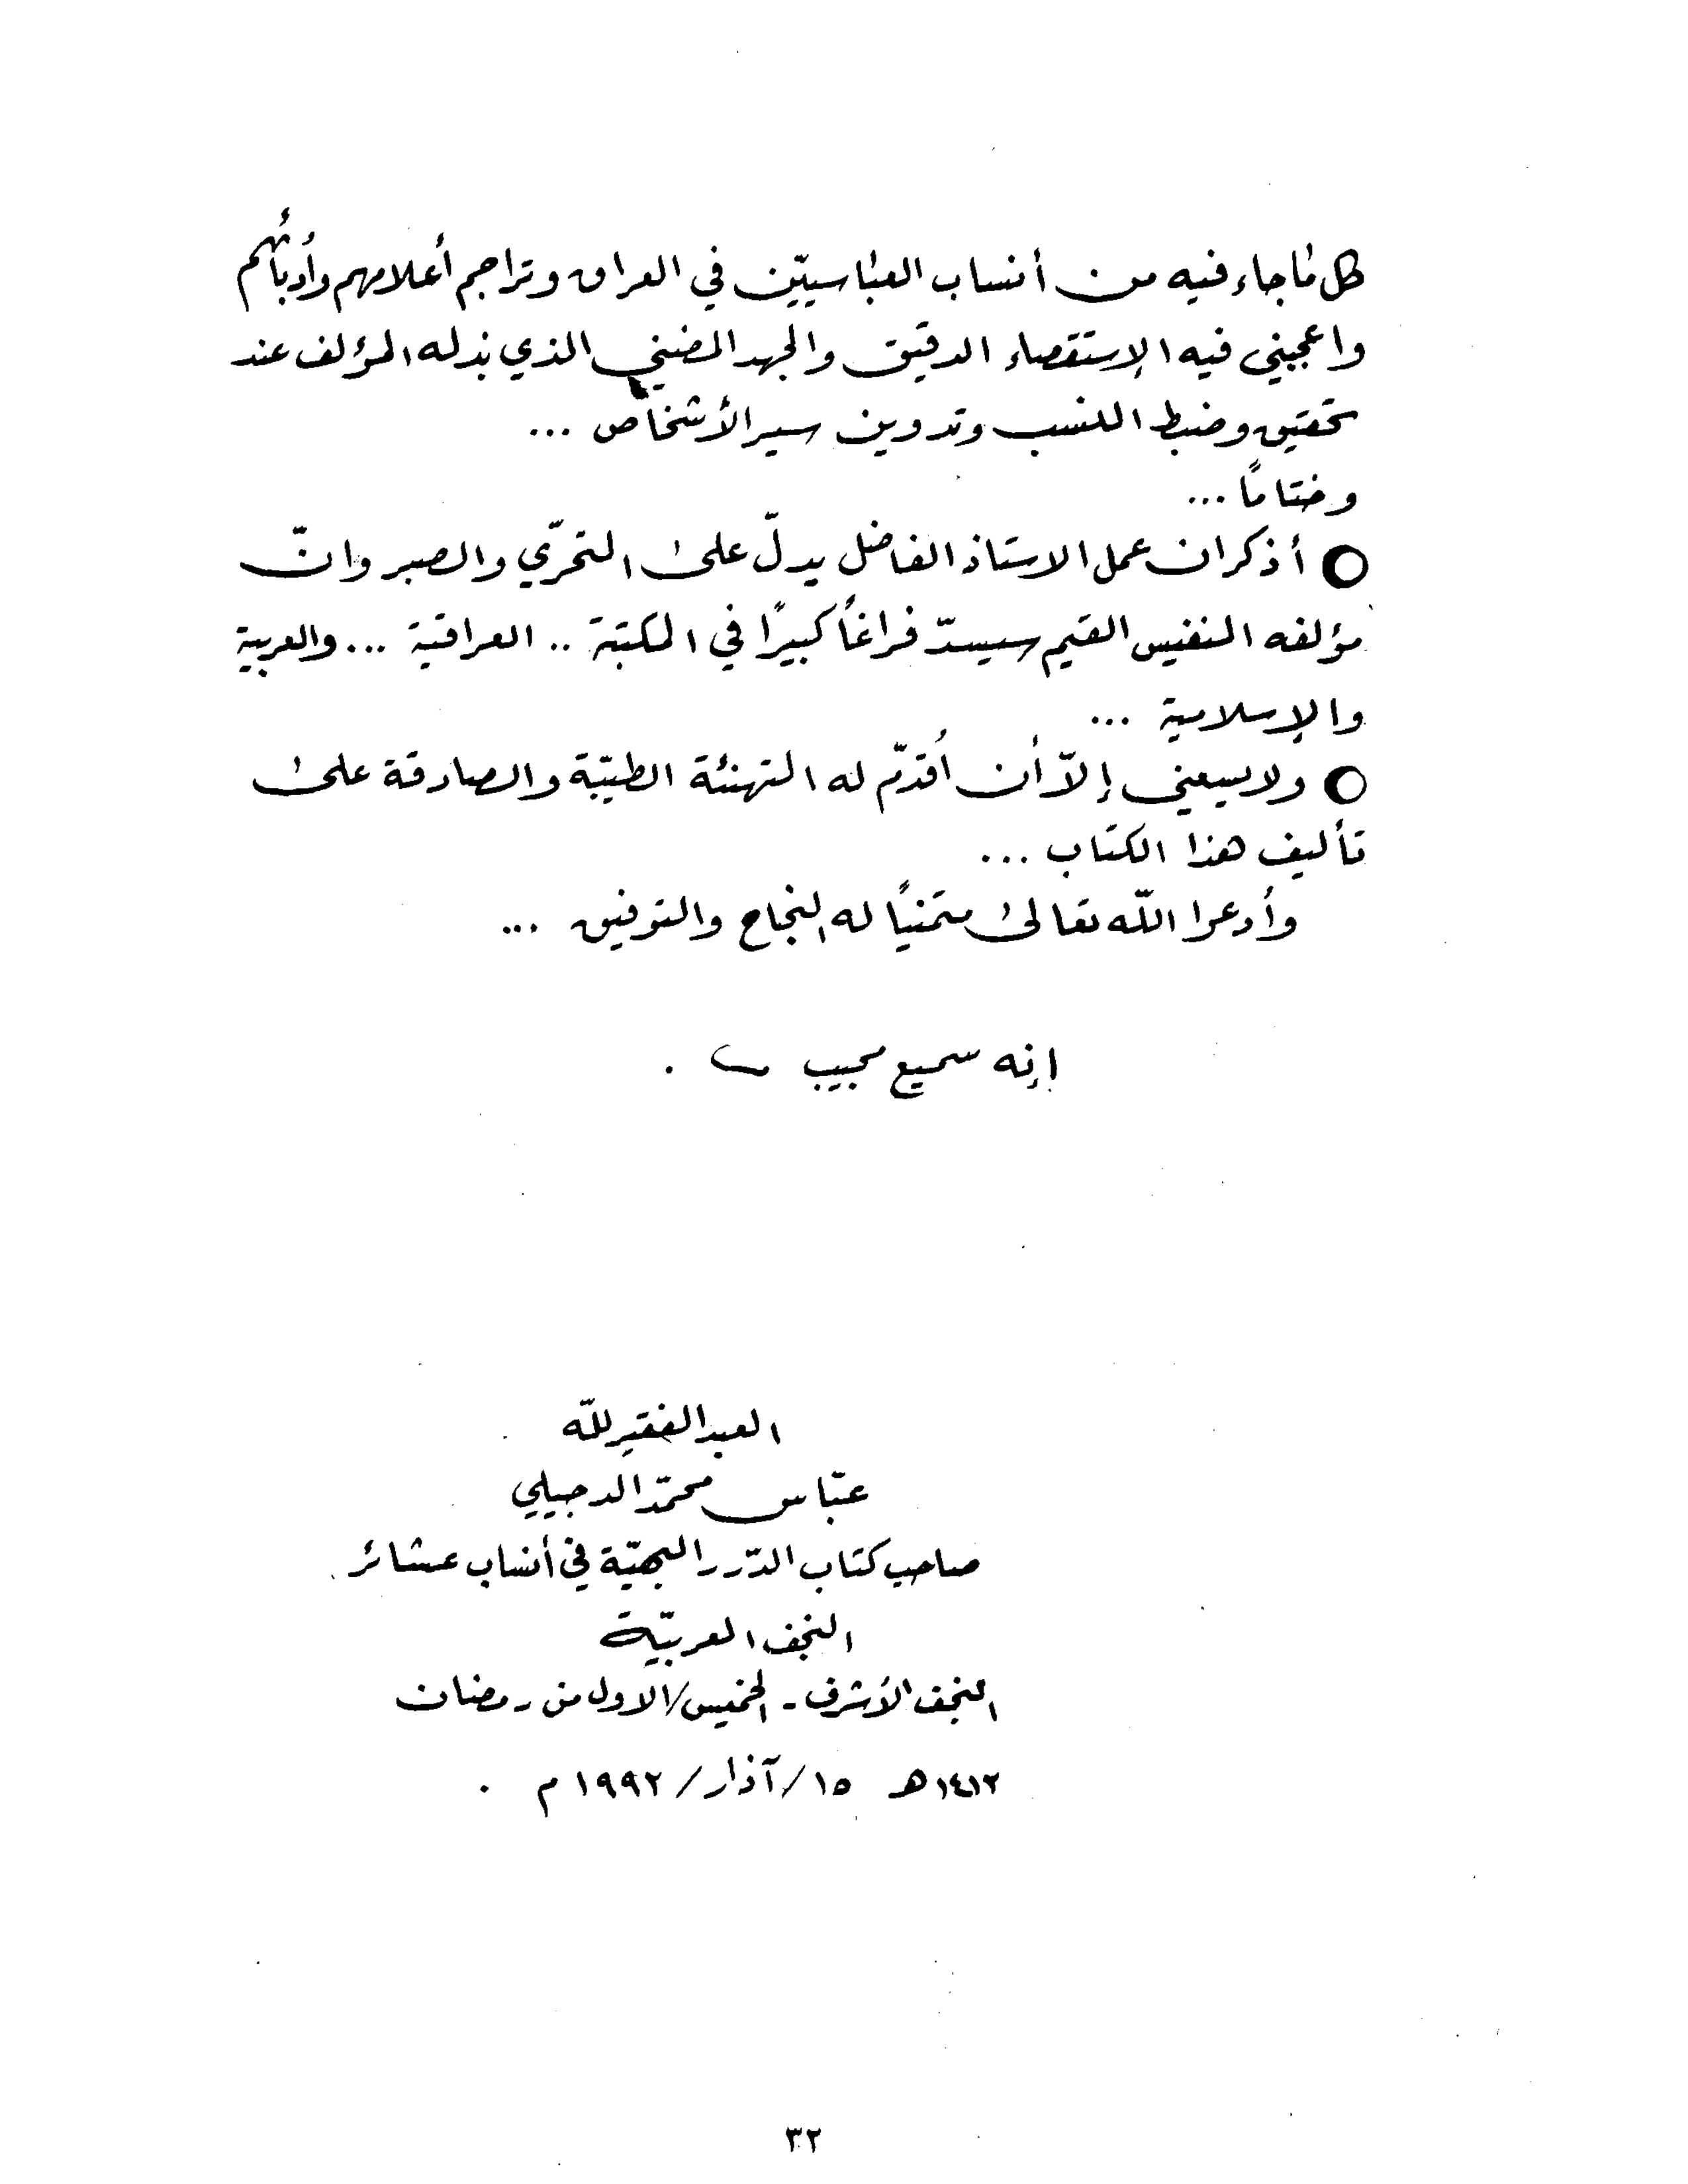 كل ما جاء فيه من أنساب العباسيّين في العراق وتراجم أعلامهم وأدبائهم
واعجبني فيه الإستقصاء الدقيق والجهد المضني الذي بذله المؤلف عند
تحقيق وضبط النسب وتدوين سير الأشخاص ...
وختامًا ...
○ أذكر ان عمل الاستاذ الفاضل يدلّ على التحرّي والصبر وانّ
مؤلفه النفيس القيم سيسدّ فراغاً كبيرًا في المكتبة .. العراقية ... والعربية
والإسلامية ...
○ ولا يسعني إلاّ أن أُقدّم له التهنئة الطيّبة والصادقة على
تأليف هذا الكتاب ...
وأدعوا اللّه تعالى متمنيًا له النجاح والتوفيق ...
إنه سميع مجيب .
العبد الفقير للّه
عبّاس محمّد الدجيلي
صاحب كتاب الدّرر البهيّة في أنساب عشائر
النجف العربيّة
النجف الأشرف - الخميس/الاول من رمضان
١٤١٢هـ ١٥/آذار/١٩٩٢م .
٣٢